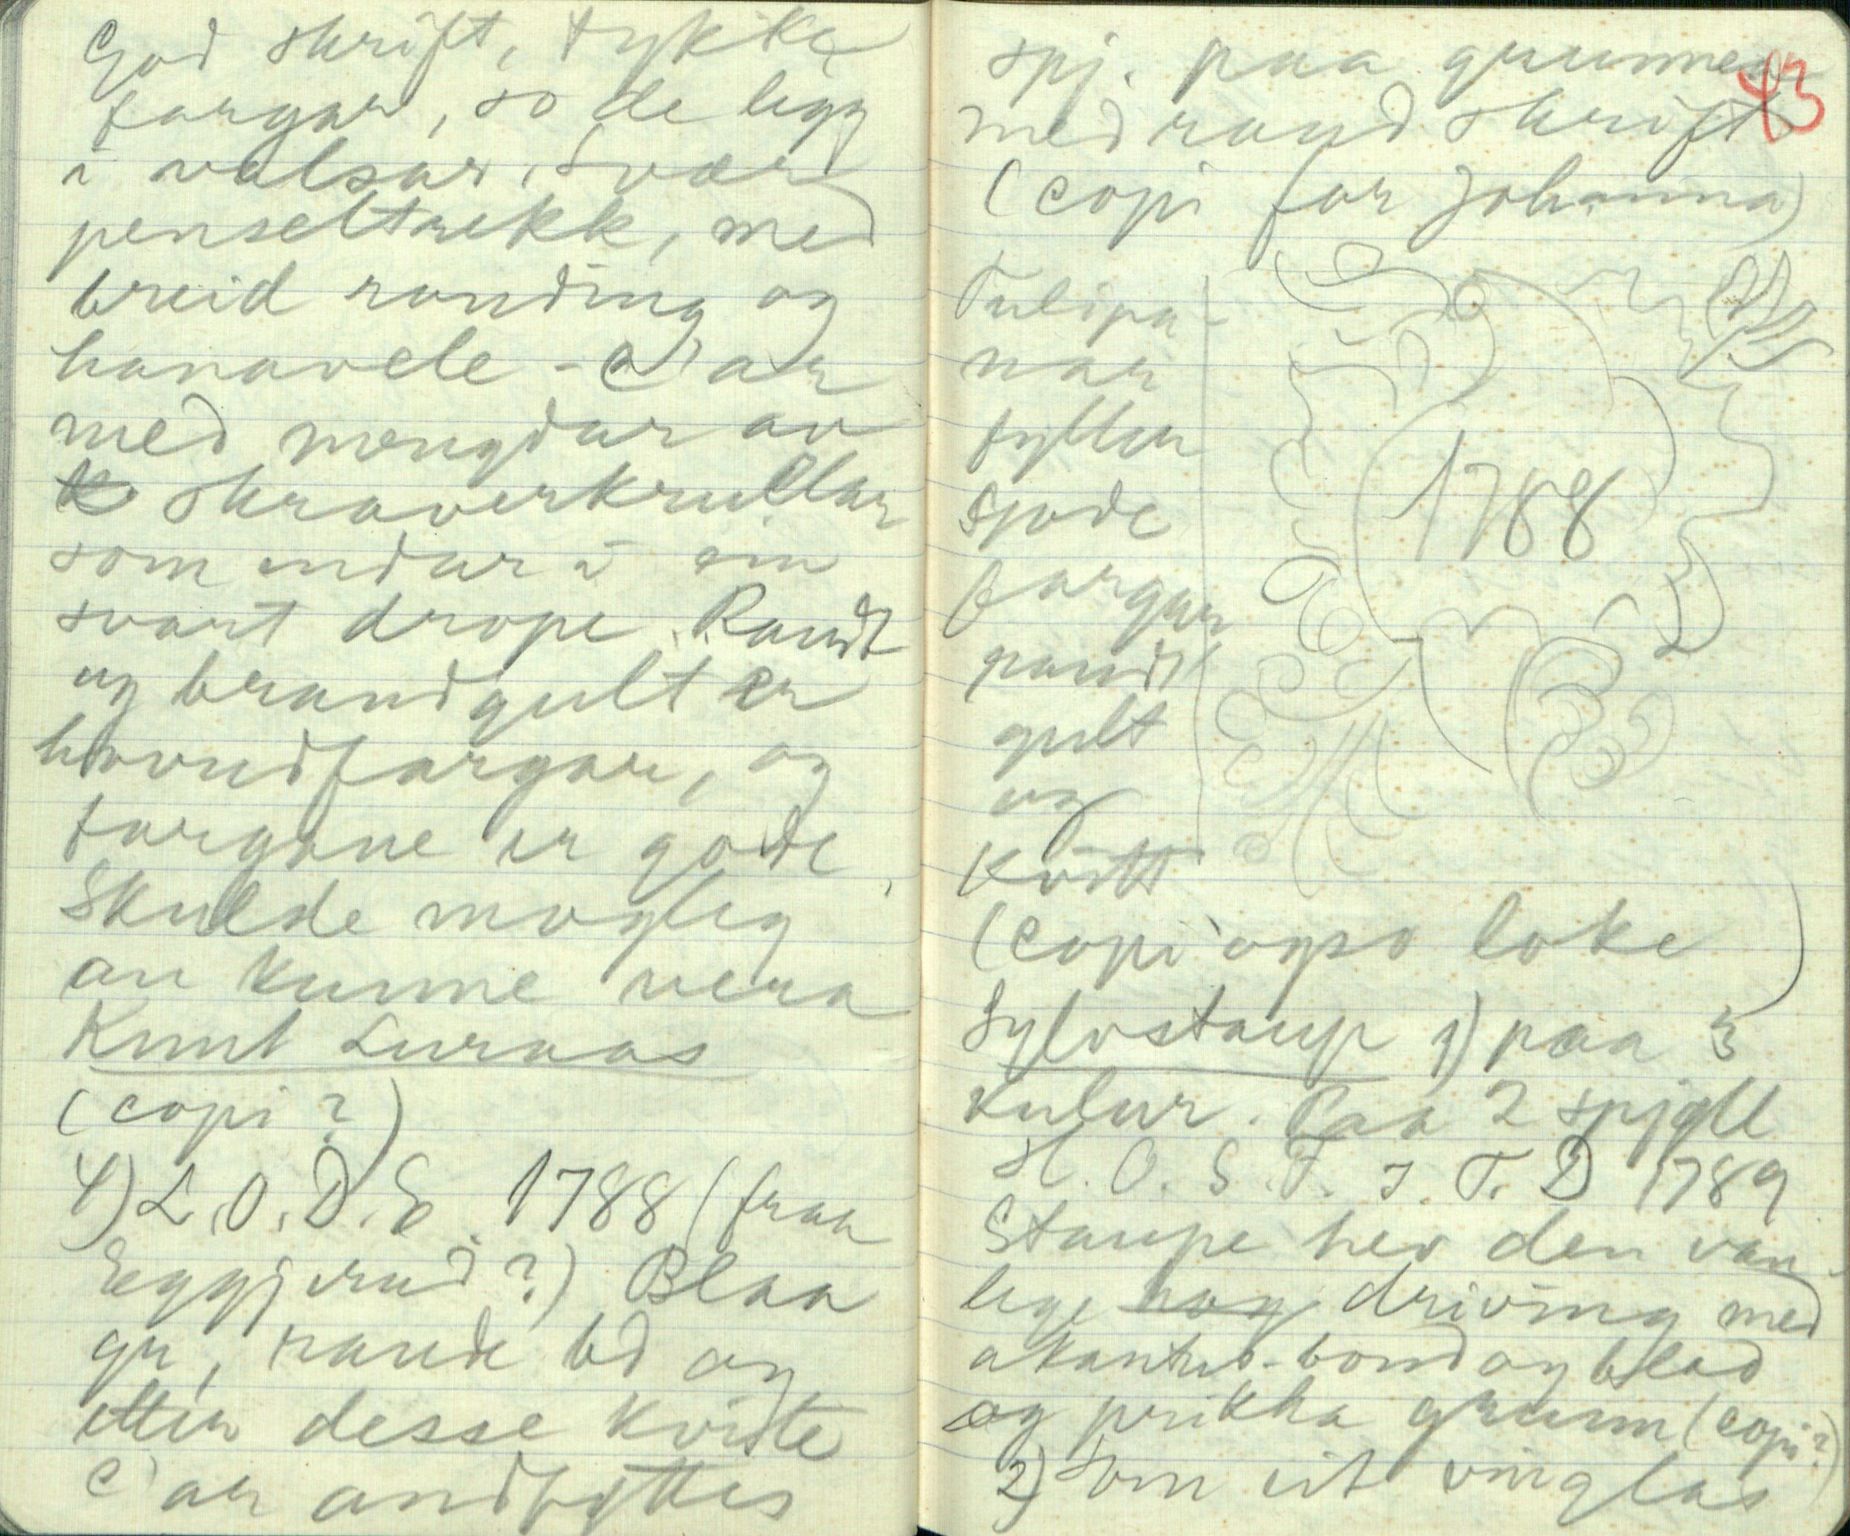 God skrift, tykke
fargar, so de ligg
i valsar. Svær
penseltrekk, med
breid runding og
hanavele - C'ar
med mengdar av
skraverkrullar
som endar i ein
svart drope. Raudt
og brandgult er
hovudfargar, og
fargane er gode.
Skulde mogleg
an kunne vera
Knut Luraas
(copi?)
4) L.O.D.E. 1788 (fraa
Eggjerud?) Blaa
gr, raude bd og
etter desse kvite
C'ar andfyttes
spj. paa grunnen
med raud skrift
(copi for Johanna)
43
Tulipa-
nar
fyller
Gode
fargar
raudt
gult
og
kvitt
1788
(copi ogso loke)
Sylvstaup 1) paa 3
kulur. Paa 2 spjell
H.O.S.F. J.T.D 1789
Staupe hev den van-
lege driving med
akantus-bord og blad
og prikka grunn (copi?)
2) Som eit vinglas